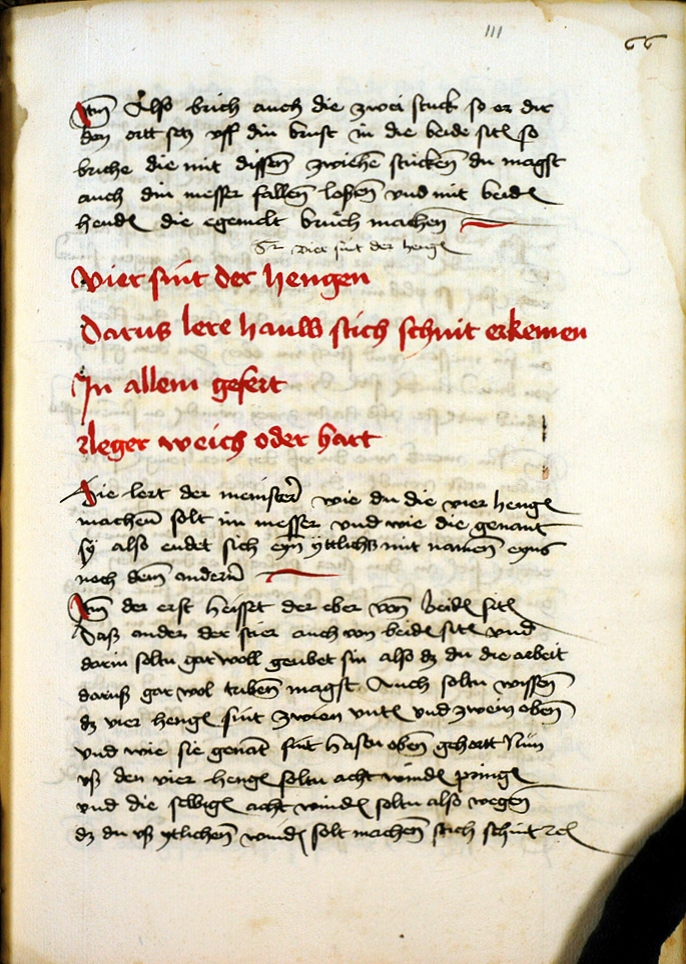 III
66
Itm Also brich auch die zwei stuck so er dir
den ortt setz vff din brust in die beide sitñ so
briche die mit dissen zwiehen stücken du magst
auch din messer fallen loßen vnd mit beidñ
hendñ die egemelt brüch machen
vier sint der hengñ
Vier sint der hengen
Darus lere hauw stich schnit erkennen
In allem gefert
leger weich oder hart
Hie lert der meinster wie du die vier hengñ
machen solt im messer vnd wie die genant
sÿ also endet sich eyn ÿttlichs mit namen eyns
noch dem andern
Itm der erst heisst der eber von beidñ sitñ
Daß ander der stier auch von beidñ sitñ vnd
darin soltu gar woll geubet sin also dz du die arbeit
daruß gar wol triben magst Auch soltu wissen
dz vier hengñ sint zwien vntñ vnd zwein oben
vnd wie sie genāt sint hastu oben gehortt Nün
vß den vier hengñ soltu acht windñ pringñ
vnd die selbigñ acht windñ soltu also wegen
dz du vß ytlichen windñ solt machen stich schnit